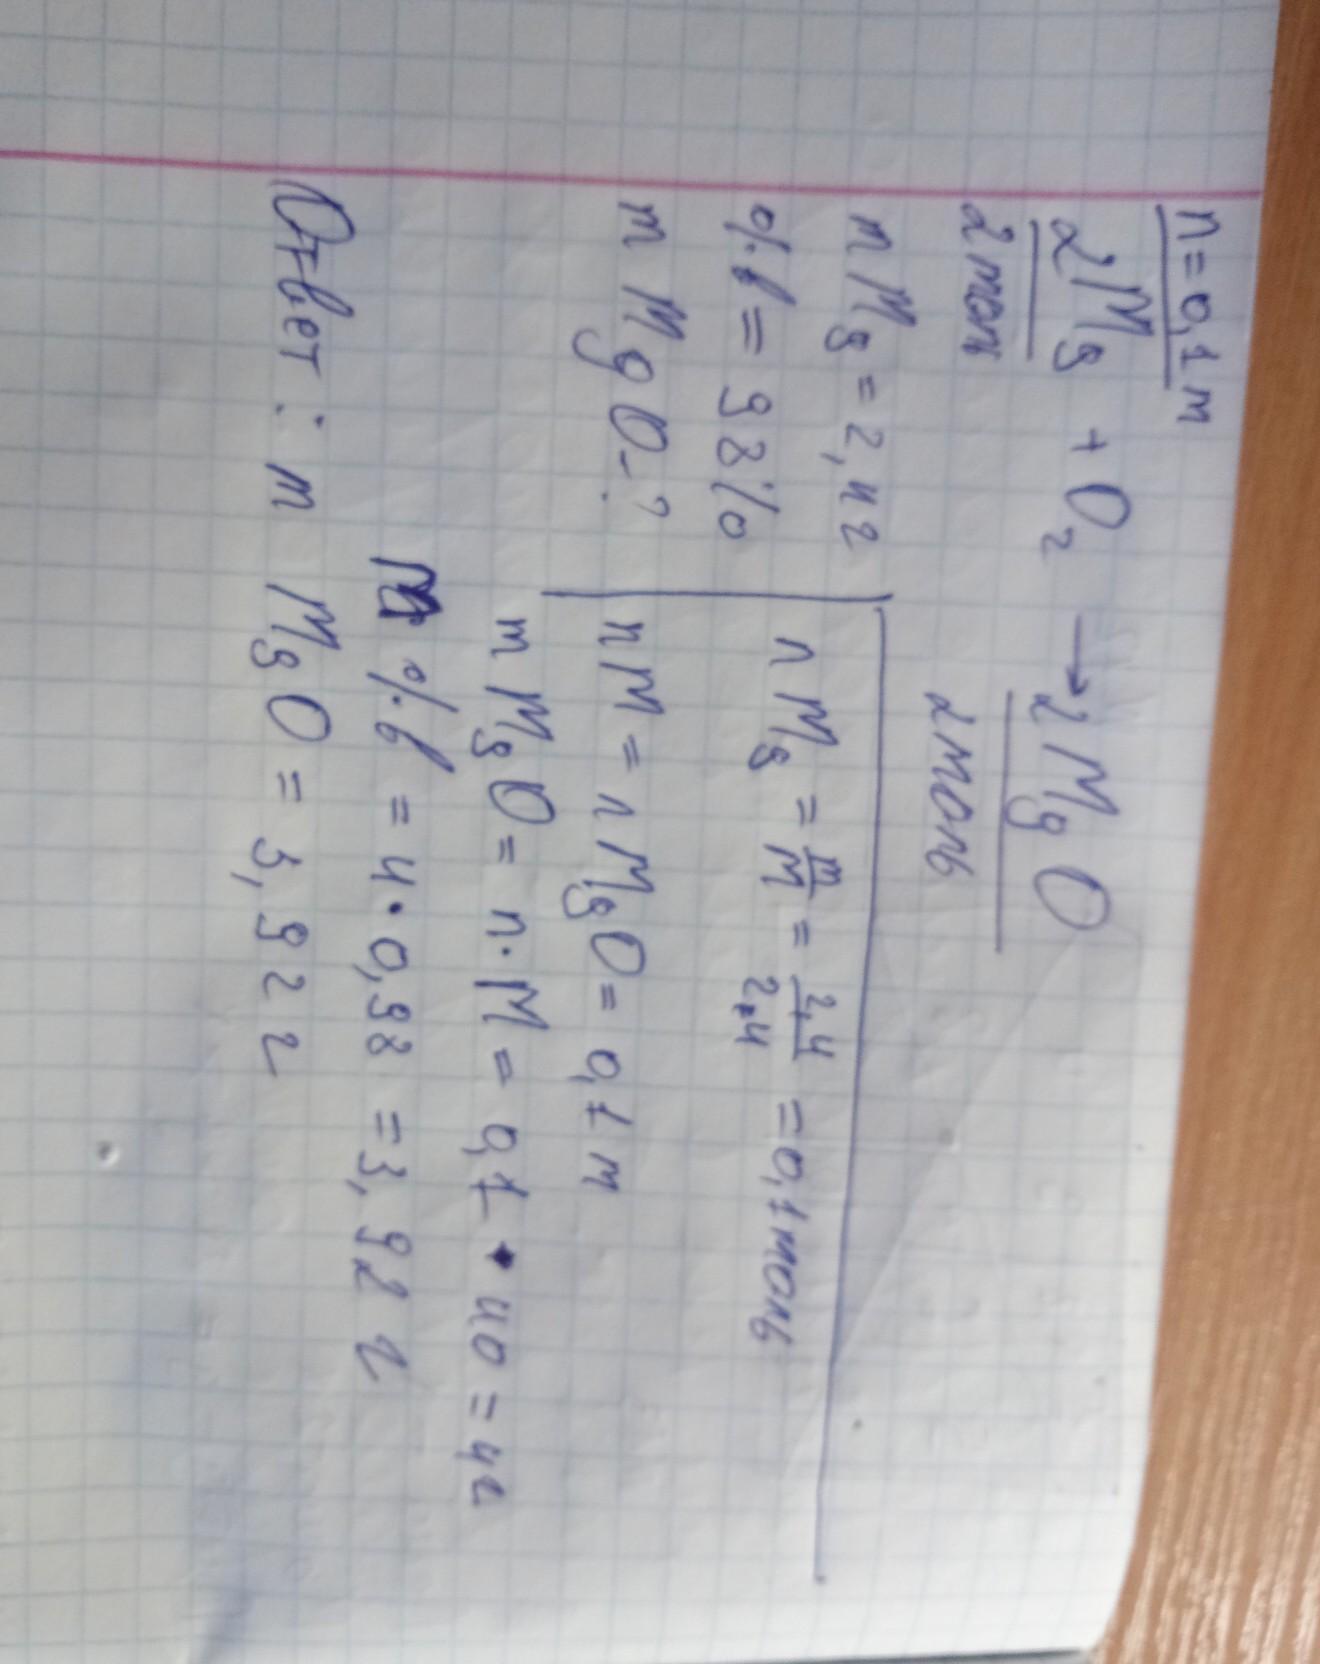 n=0,1 м
2Mg + O2 → 2MgO
2моль 2моль
m Mg = 2,4 г
%в = 98%
m MgO - ?
n Mg = m/M = 2,4/2,4 = 0,1 моль
n M = n MgO = 0,1 м
m MgO = n · M = 0,1 · 40 = 4г
%в = 4 · 0,98 = 3,92 г
Ответ : m MgO = 3,92 г